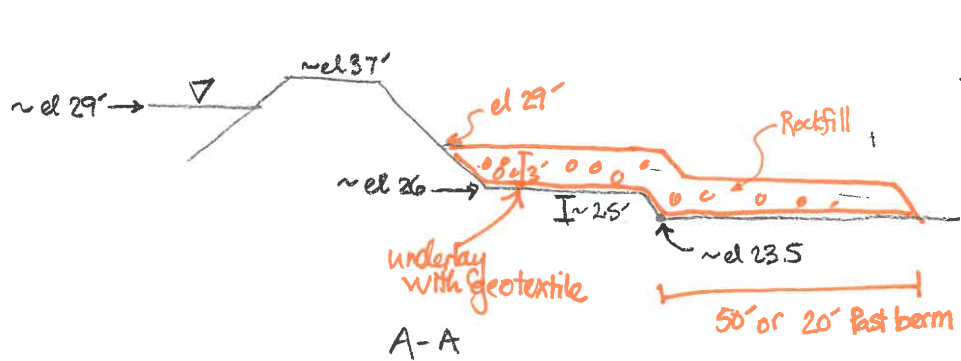 ~el 37'
~ el 29'
el 29'
Rockfill
3'
~el 26
~25'
~el 23.5
underlay
with Geotextile
50' or 20' Past berm
A-A